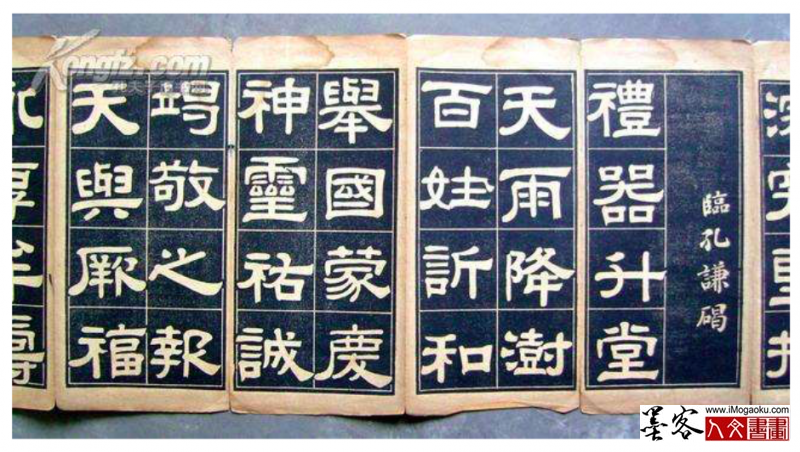 臨孔謙碣
禮器升堂
天雨降澍
百姓訢和
舉國蒙慶
神靈祐誠
竭敬之報
天與厥福
www.iMogaoku.com
墨客
人文書畫